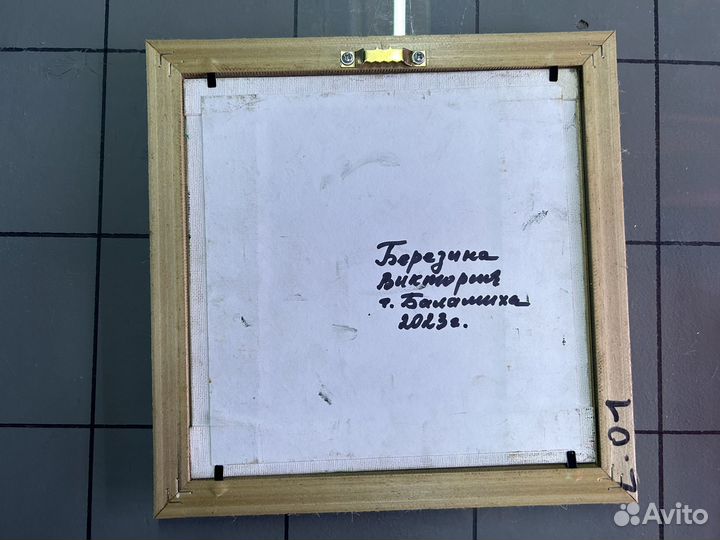 Березина
Виктория
г. Балашиха
2023г.
L.01
Avito